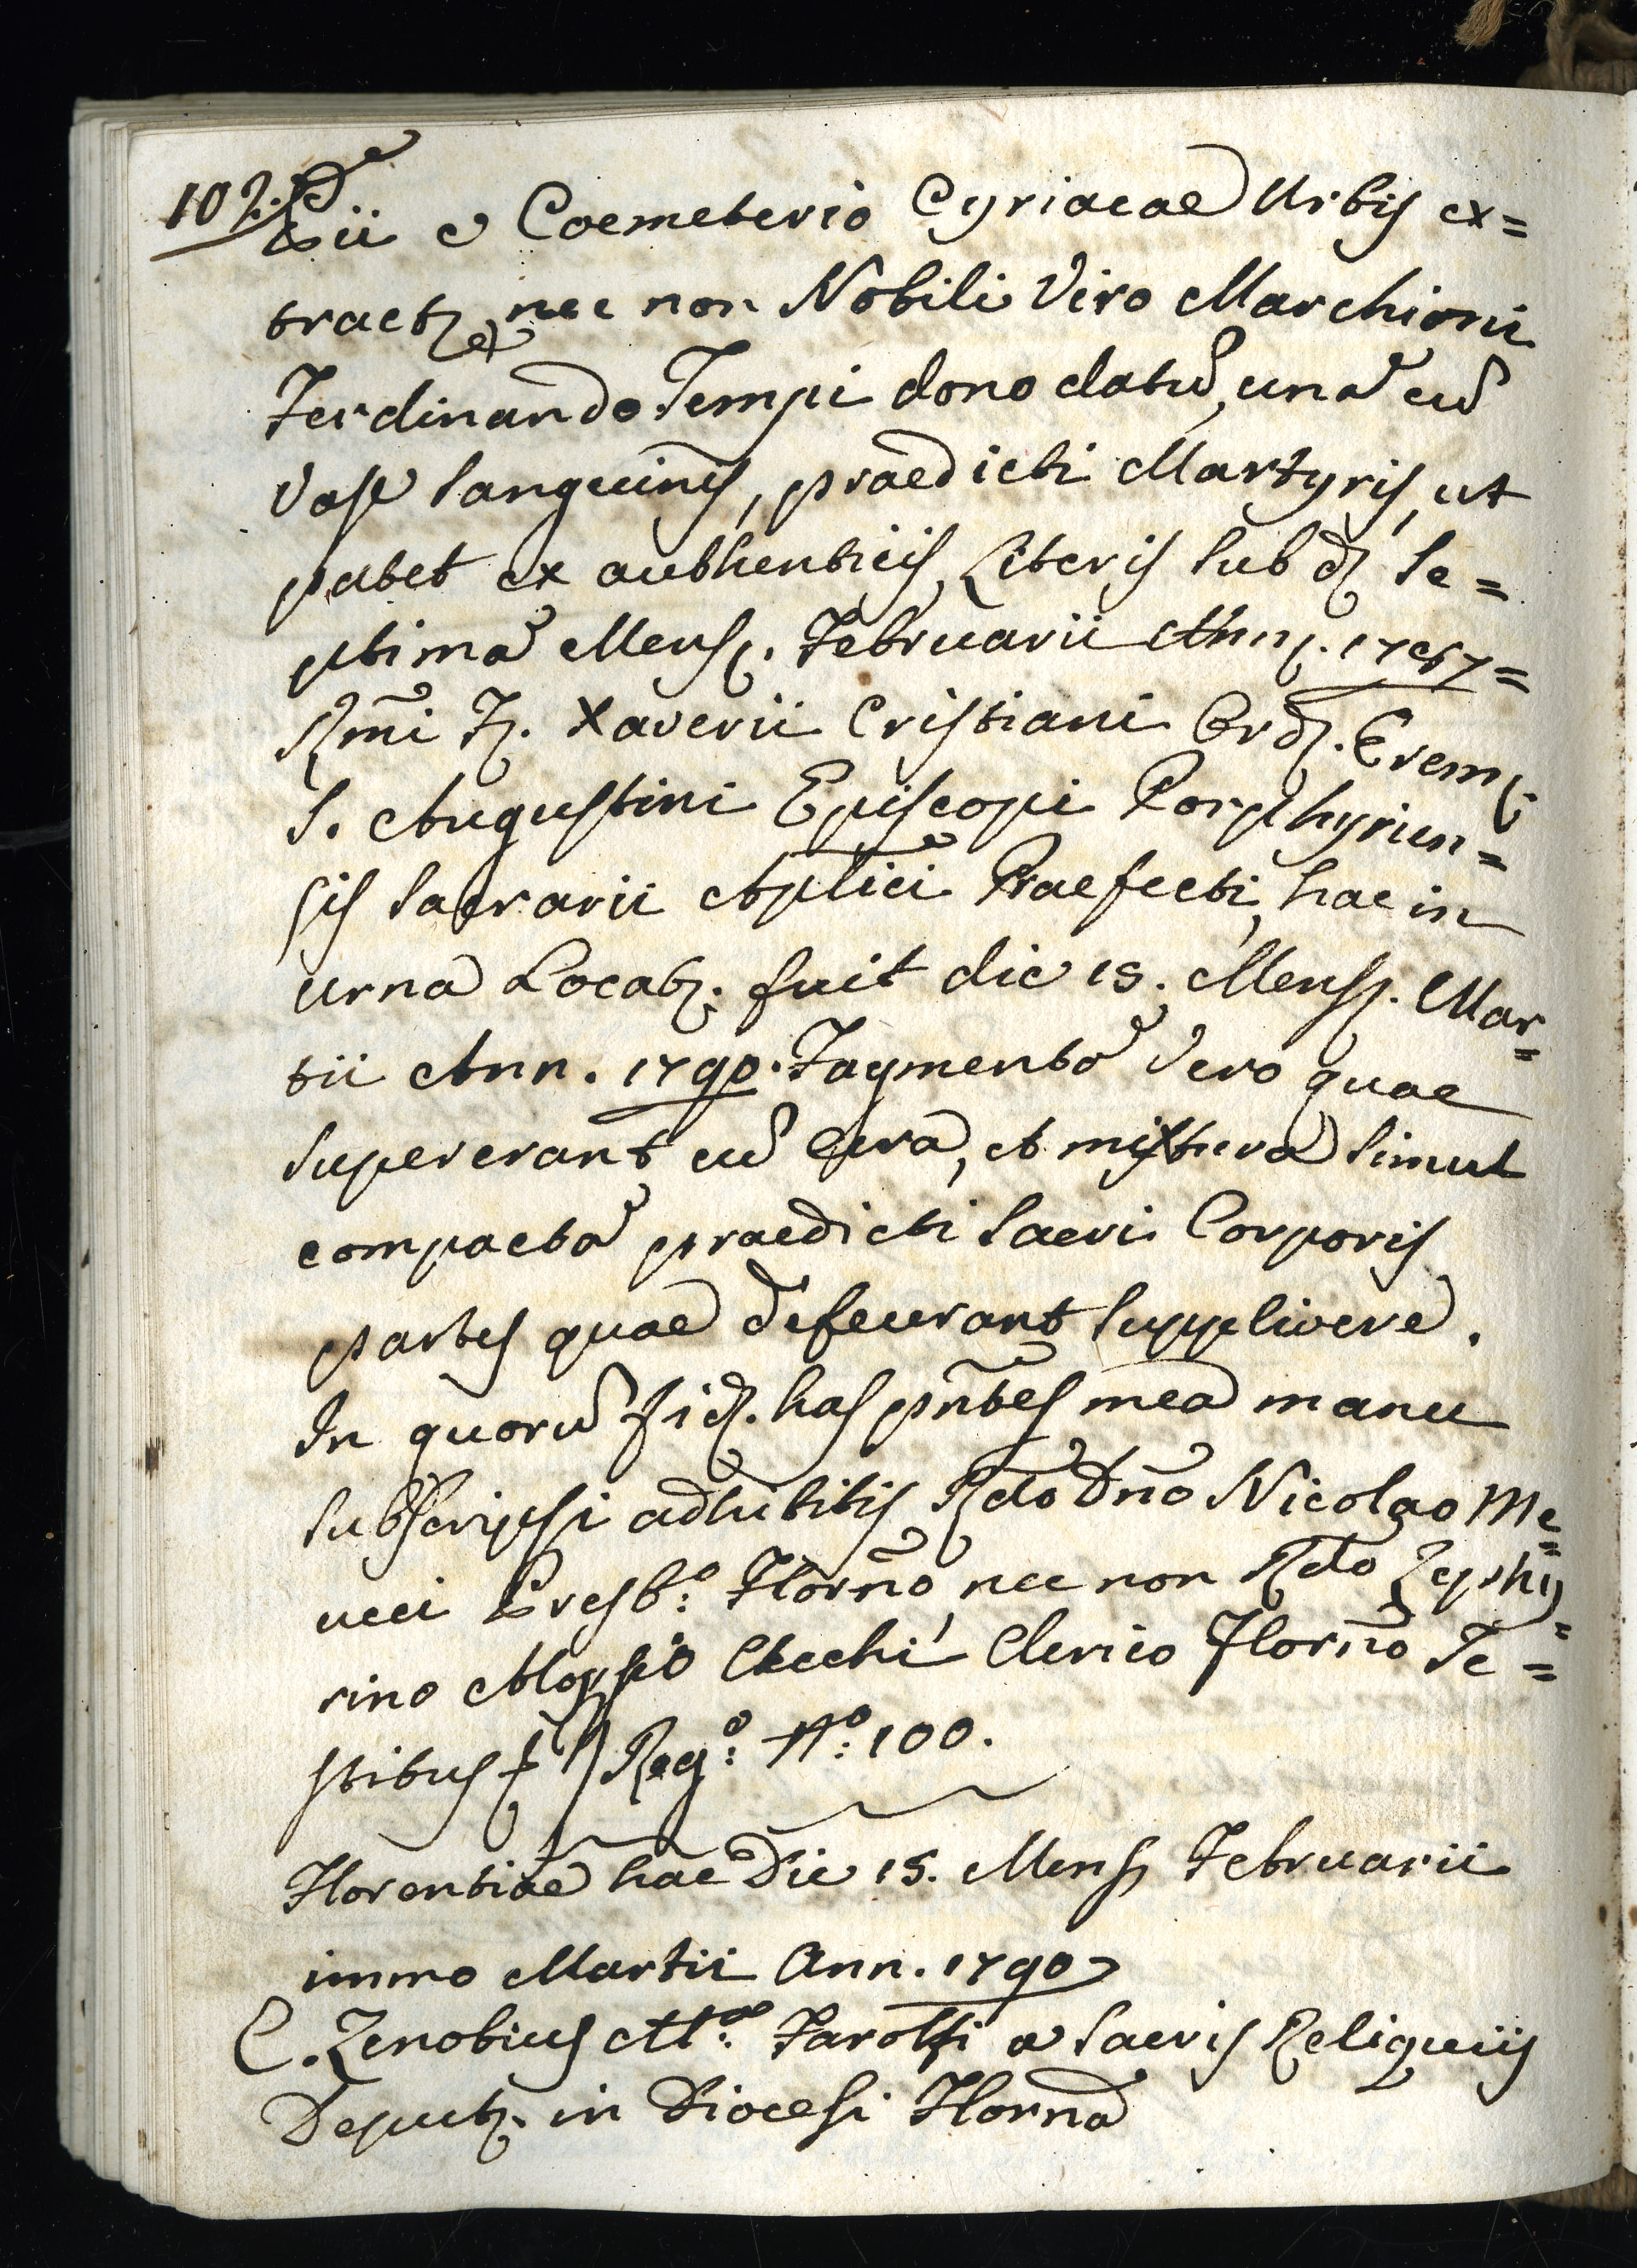 102.
tii e Coemeterio Cyriacae Urbis ex=
tract. nec non Nobili Viro Marchioni
Ferdinando Tempi dono datũ, una cũ
Vase Sanguinis, praedicti Martyris, ut
patet ex authenticis Literis sub d. Se=
ptima Mens. Februarii Ann. 1757=
Rm̃i F. Xaverii Cristiani Ord. Erem.
S. Augustini Episcopi Porphyrien=
sis Sacrarii Ap̃lici Praefecti, hac in
Urna Locat. fuit die 15. Mens. Mar=
tii Ann. 1790. Fagmenta Vero quae
supererant cũ Cera, et mixtura simul
compacta praedicti Sacri Corporis
partes quae defeurant supplivere.
In quorũ fid. has p̃ntes mea manu
subscripsi adhibitis R̃do Dño Nicolao Me=
ucci Presb.º Flor̃no nec non R̃do Zephy=
rino Aloysio Checchi Clerico Flor̃no Te=
stibus Reg.º Nº: 100.
Florentiae hac Die 15. Mens Februarii
immo Martii Ann. 1790
C. Zenobius Mª. Farolfi a Sacris Reliquiis
Deput. in Diocesi Florñа